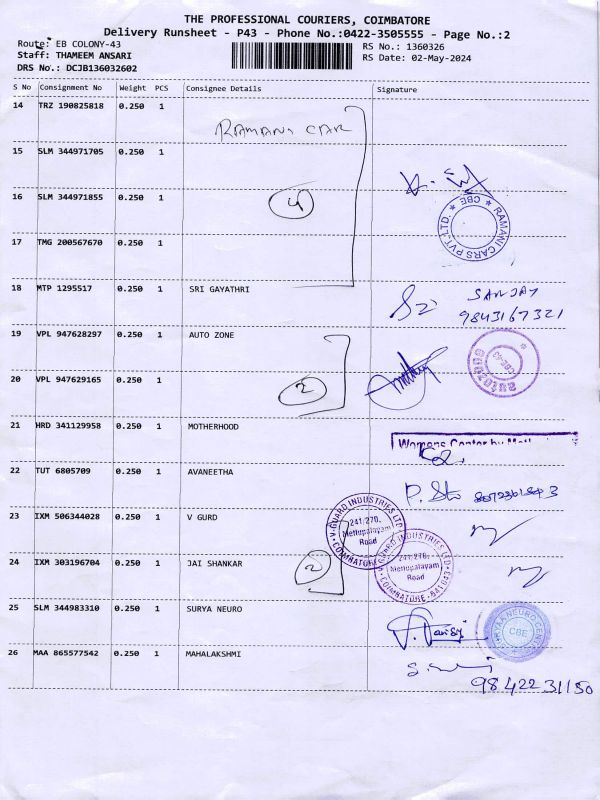 THE PROFESSIONAL COURIERS, COIMBATORE
Delivery Runsheet - P43 - Phone No.:0422-3505555 - Page No.:2
Route: EB COLONY-43 RS No.: 1360326
Staff: THAMEEM ANSARI RS Date: 02-May-2024
DRS No.: DCJB136032602
S No Consignment No Weight PCS Consignee Details Signature
14 TRZ 190825818 0.250 1
RAMANI CAR
15 SLM 344971705 0.250 1
16 SLM 344971855 0.250 1
4
RAMANI CARS PVT.LTD. ★ CBE ★
17 TMG 200567670 0.250 1
18 MTP 1295517 0.250 1 SRI GAYATHRI SANJAY
9843167321
19 VPL 947628297 0.250 1 AUTO ZONE
20 VPL 947629165 0.250 1
2
21 HRD 341129958 0.250 1 MOTHERHOOD
22 TUT 6805709 0.250 1 AVANEETHA
23 IXM 506344028 0.250 1 V GURD
V-GUARD INDUSTRIES LTD COIMBATORE
241, 270,
Mettupalayam
Road
24 IXM 303196704 0.250 1 JAI SHANKAR
2
V-GUARD INDUSTRIES LTD COIMBATORE - 641043
241, 270,
Mettupalayam
Road
25 SLM 344983310 0.250 1 SURYA NEURO
CBE
26 MAA 865577542 0.250 1 MAHALAKSHMI
9842231150